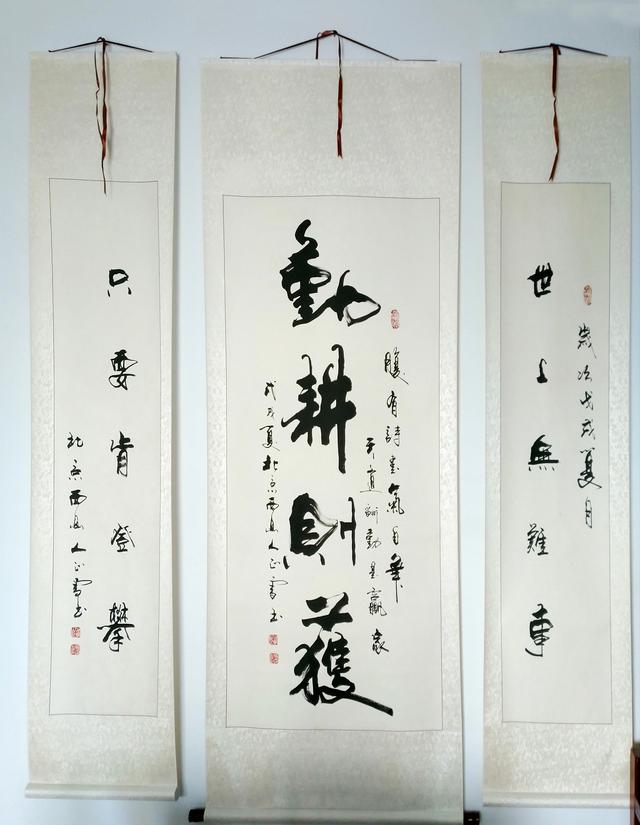 歲次戊戌夏月
世上無難事
腹有詩書氣自華
天道酬勤是贏家
勤耕則獲
戊戌夏北京西山人正書
只要肯登攀
北京西山人正書